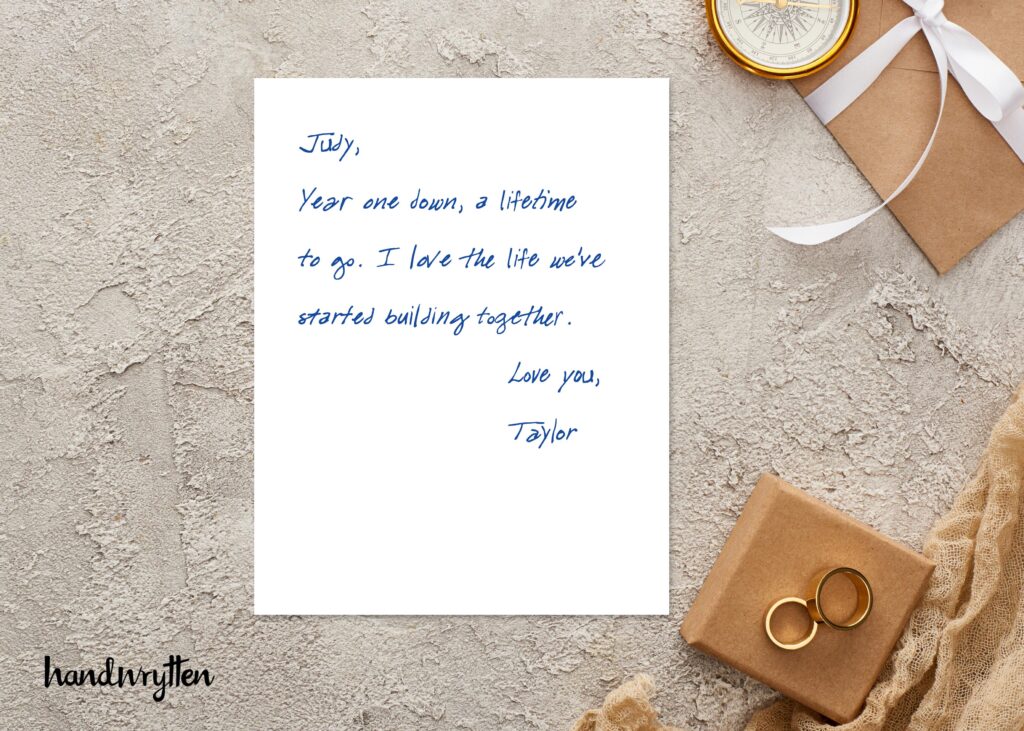 Judy,
Year one down, a lifetime
to go. I love the life we've
started building together.
Love you,
Taylor
handwrytten